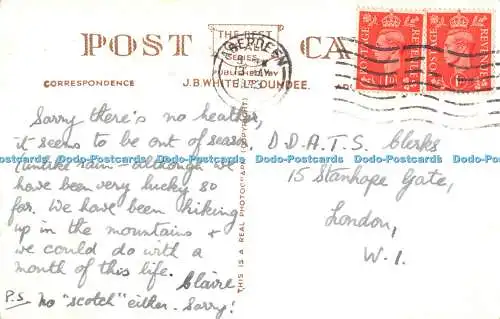 POST CA
THE BEST
SERIES
PUBLISHED BY
J.B. WHITE LTD. DUNDEE.
CORRESPONDENCE
ABERDEEN
POSTAGE REVENUE
1D 1D
THIS IS A REAL PHOTOGRAPH (COPYRIGHT)
Sorry there's no heather,
it seems to be out of season
(unlike rain – although we
have been very lucky so
far. We have been hiking
up in the mountains &
we could do with a
month of this life.
Claire
P.S. No "scotch" either. Sorry!
D.D.A.T.S. Clerks
15 Stanhope Gate,
London,
W.1.
Dodo-Postcards Dodo-Postcards Dodo-Postcards Dodo-Postcards Dodo-Postcards